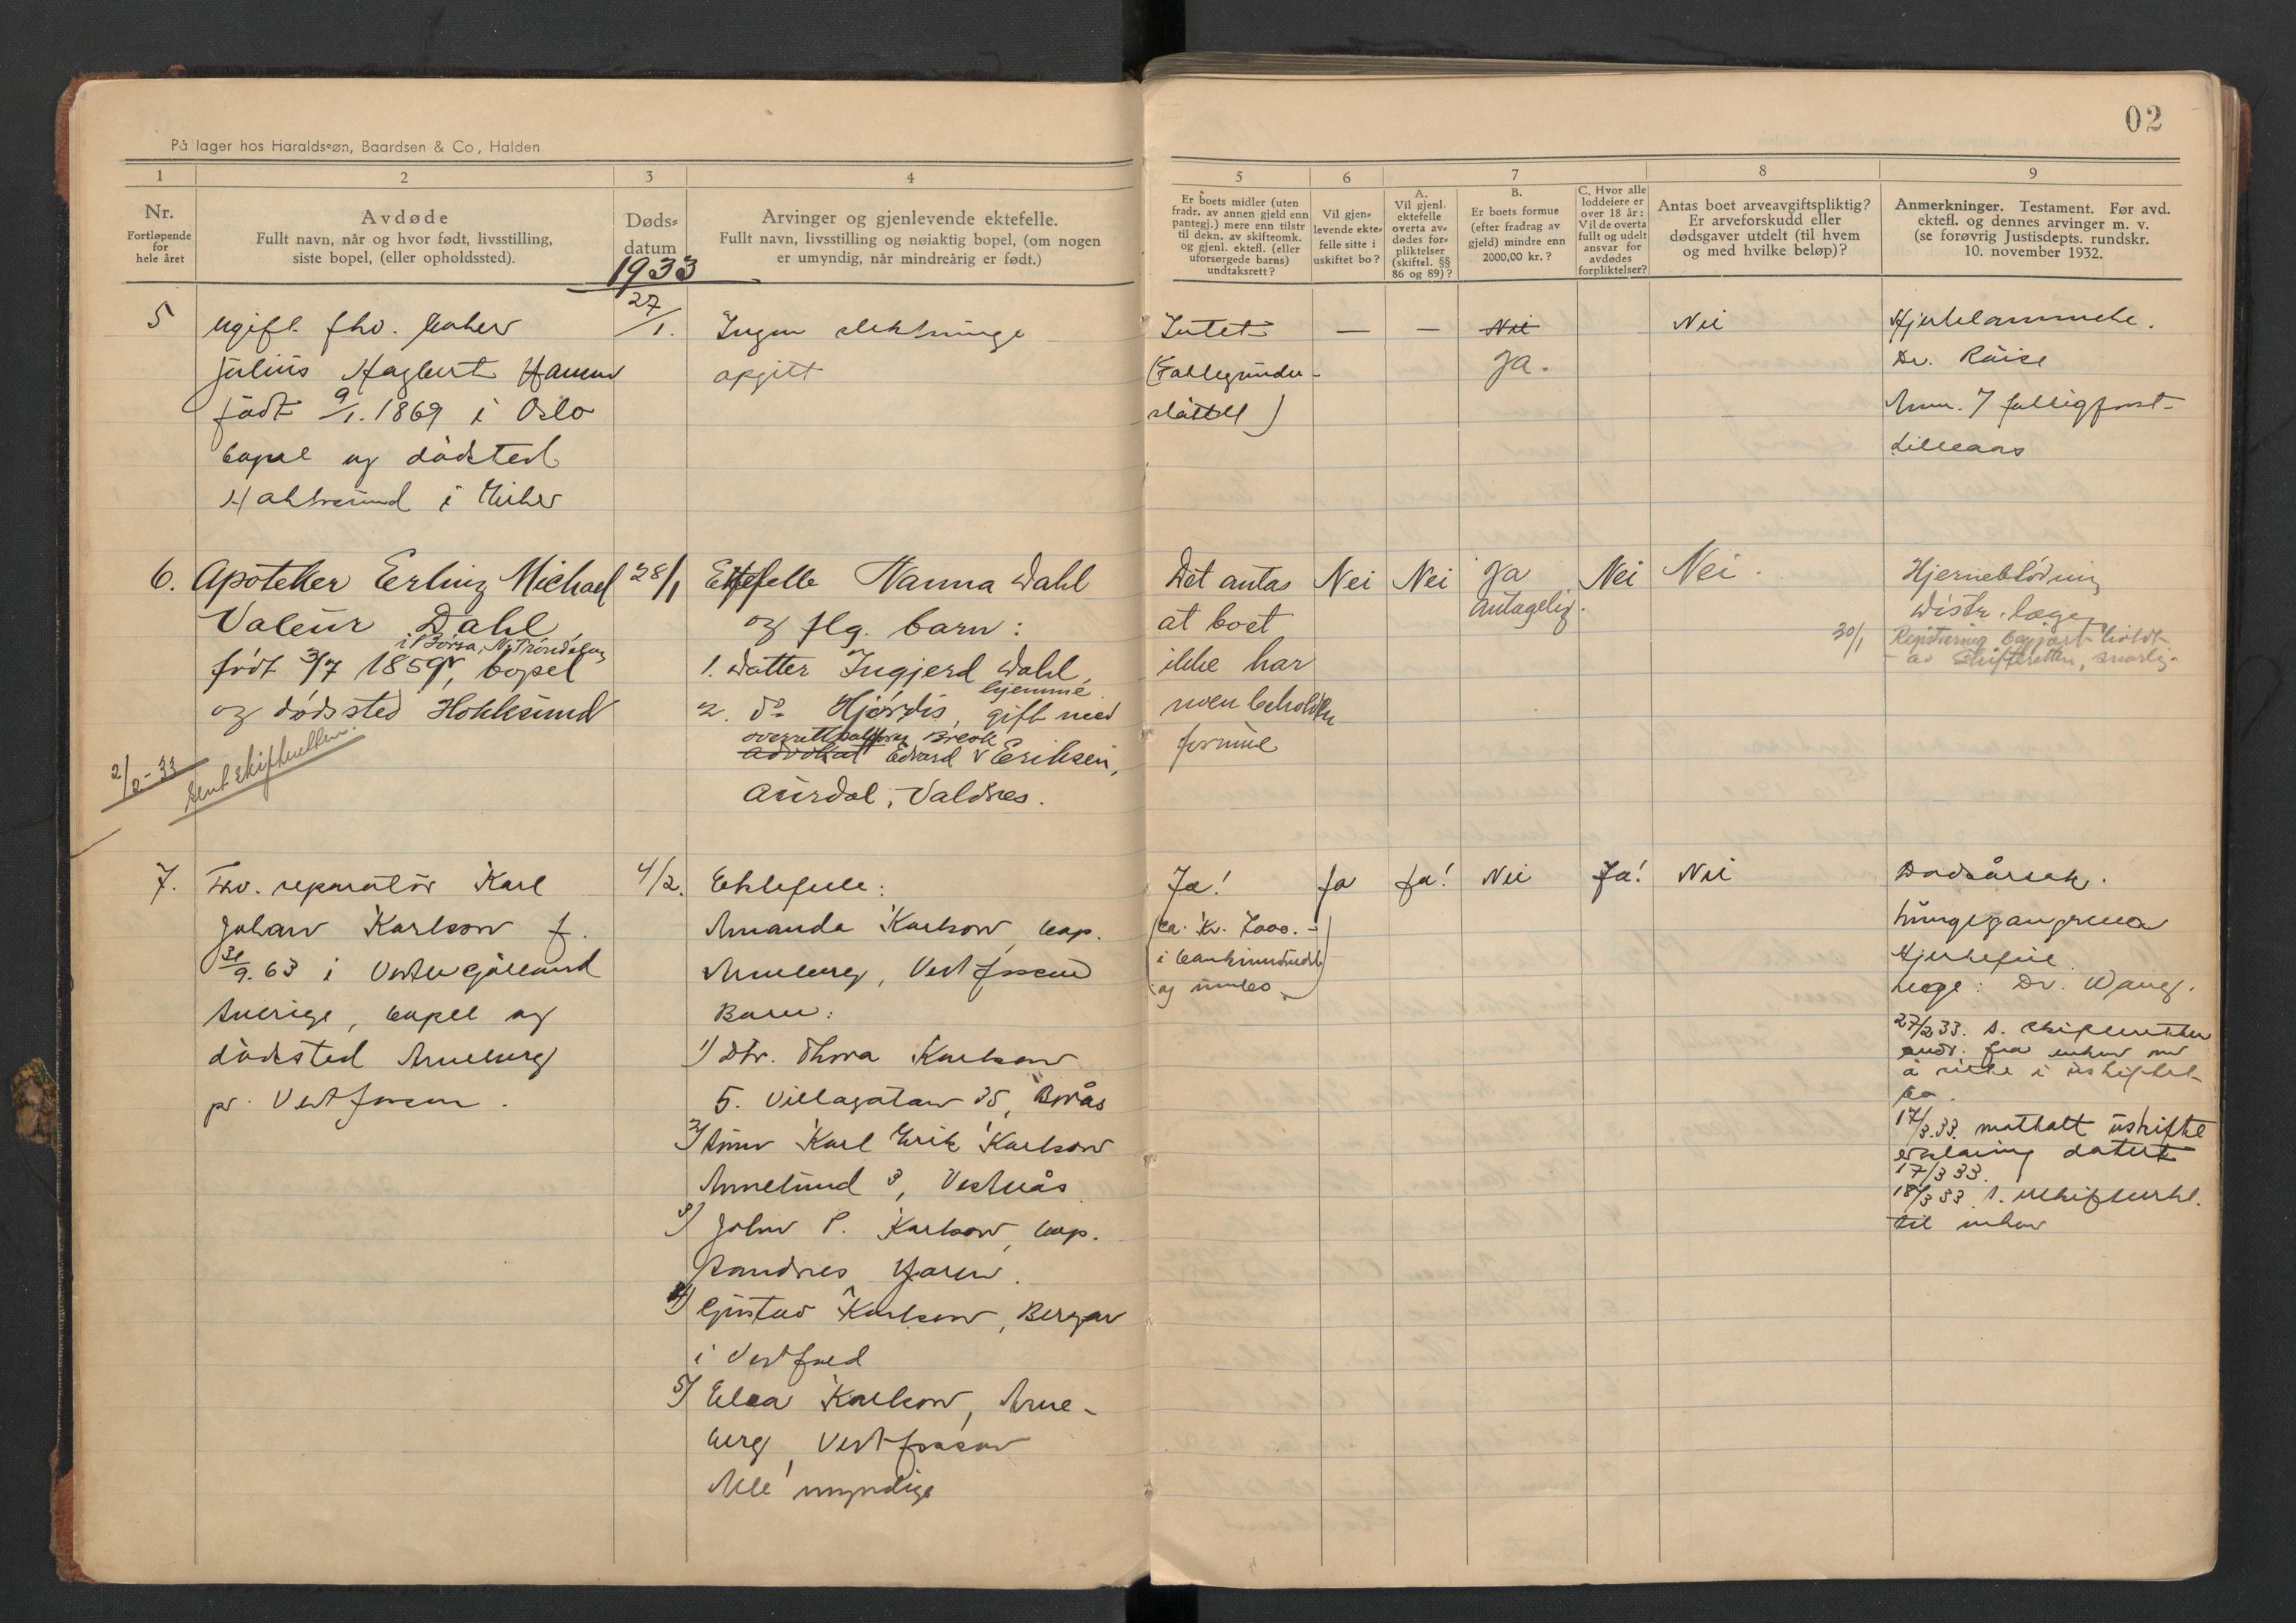 02
På lager hos Haraldssøn, Baardsen & Co, Halden
1 2 3 4
Nr.
Fortløpende
for
hele året
Avdøde
Fullt navn, når og hvor født, livsstilling,
siste bopel, (eller opholdssted).
Døds-
datum
1933
Arvinger og gjenlevende ektefelle.
Fullt navn, livsstilling og nøiaktig bopel, (om nogen
er umyndig, når mindreårig er født.)
5 6 7 8 9
Er boets midler (uten
fradr. av annen gjeld enn
pantegj.) mere enn tilstr
til dekn. av skifteomk.
og gjenl. ektefl. (eller
uforsørgede barns)
undtaksrett?
Vil gjen-
levende ekte-
felle sitte i
uskiftet bo?
A.
Vil gjenl.
ektefelle
overta av-
dødes for-
pliktelser
(skiftel. §§
86 og 89)?
B.
Er boets formue
(efter fradrag av
gjeld) mindre enn
2000,00 kr.?
C. Hvor alle
loddeiere er
over 18 år:
Vil de overta
fullt og udelt
ansvar for
avdødes
forpliktelser?
Antas boet arveavgiftspliktig?
Er arveforskudd eller
dødsgaver utdelt (til hvem
og med hvilke beløp)?
Anmerkninger. Testament. Før avd.
ektefl. og dennes arvinger m. v.
(se forøvrig Justisdepts. rundskr.
10. november 1932.
5
ugift fhv.
Julius Hagbert Hansen
født 9/1. 1869 i Oslo
bopel og dødsted
i
27/1.
Ingen slektninge
opgitt
Intet
—
—
Nei
Ja.
Nei
Hjertelammelse.
Dr.
Anm. 7
6.
Apoteker Erling Michael
Valeur Dahl,
i Børsa, N. Trøndelag
født 3/7 1859, bopel
og dødssted Hokksund
2/2-33
sent skifteretten.
28/1
Ektefelle Nanna Dahl
og flg. barn:
1. Datter Ingjerd Dahl,
hjemme
2. do Hjørdis, gift med
Advokat Edvard Eriksen,
Aurdal, Valdres.
Det antas
at boet
ikke har
noen beholden
formue
Nei
Nei
Ja
antagelig.
Nei
Nei.
Hjerneblødning
Distr. læge
30/1 Registrering begjært
av Skifteretten, snarlig.
7.
fhv. reparatør Karl
Johan Karlson f.
9. 63 i
Sverige, bopel og
dødsted Arneberg
pr. Vestfossen.
4/2.
Ektefelle:
Amanda Karlson, bop.
Arneberg, Vestfossen
Barn:
1) dtr. Thora Karlson
5. Villagatan 35, Borås
2) Sønn Karl Erik Karlson
Annelund 3, Västerås
3) John P. Karlson, bop.
Sandnes Jæren.
4) Gustav Karlson, Bergan
i Vestfold
5) Elsa Karlson, Arne-
berg, Vestfossen
Alle myndige
Ja!
(ca. Kr. 7000.-
i bankinnskudd
og innbo)
Ja
Ja!
Nei
Ja!
Nei
Dødsårsak.
Lungegangrena
Hjertefeil
Læge: Dr. Wang.
27/2 33. s. skifteretten
andr. fra enken om
å sitte i uskiftet
bo.
17/3.33. mottatt uskifte
erklæring datert
17/3 33.
18/3 33 s. uskifteerkl.
til enken